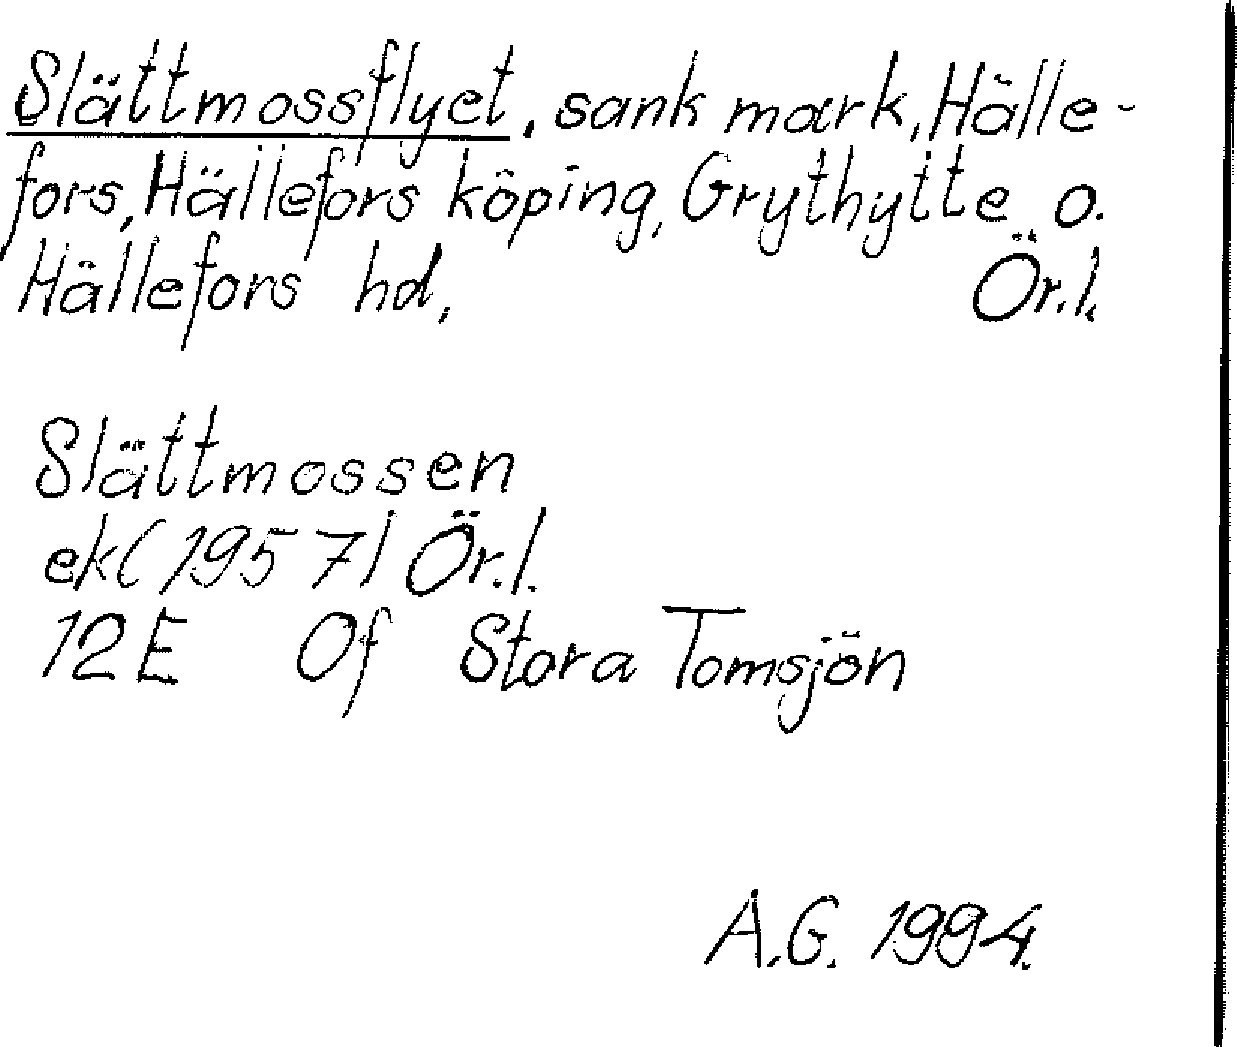 Slättmossflyet, sank mark, Hälle-
fors, Hällefors köping, Grythytte o.
Hällefors hd, Ör.l.
Slättmossen
ek (1957) Ör.l.
12E 0f Stora Tomsjön
A.G. 1994.